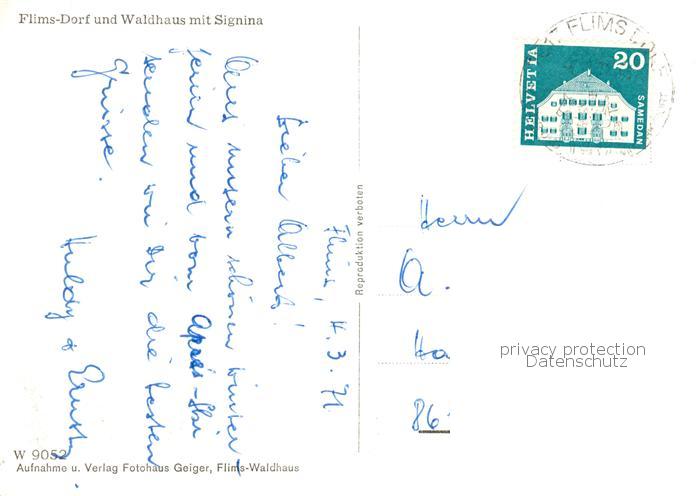 Flims-Dorf und Waldhaus mit Signina
Flims, 4.3.71
Lieber Albert!
Aus unsern schönen Winter-
ferien und vom Après-Ski
senden wir Dir die besten
Grüsse.
Huldy & Ernst.
W 9052
Aufnahme u. Verlag Fotohaus Geiger, Flims-Waldhaus
Reproduktion verboten
FLIMS
HELVETIA
20
SAMEDAN
Herrn
A.
Ha
86
privacy protection
Datenschutz